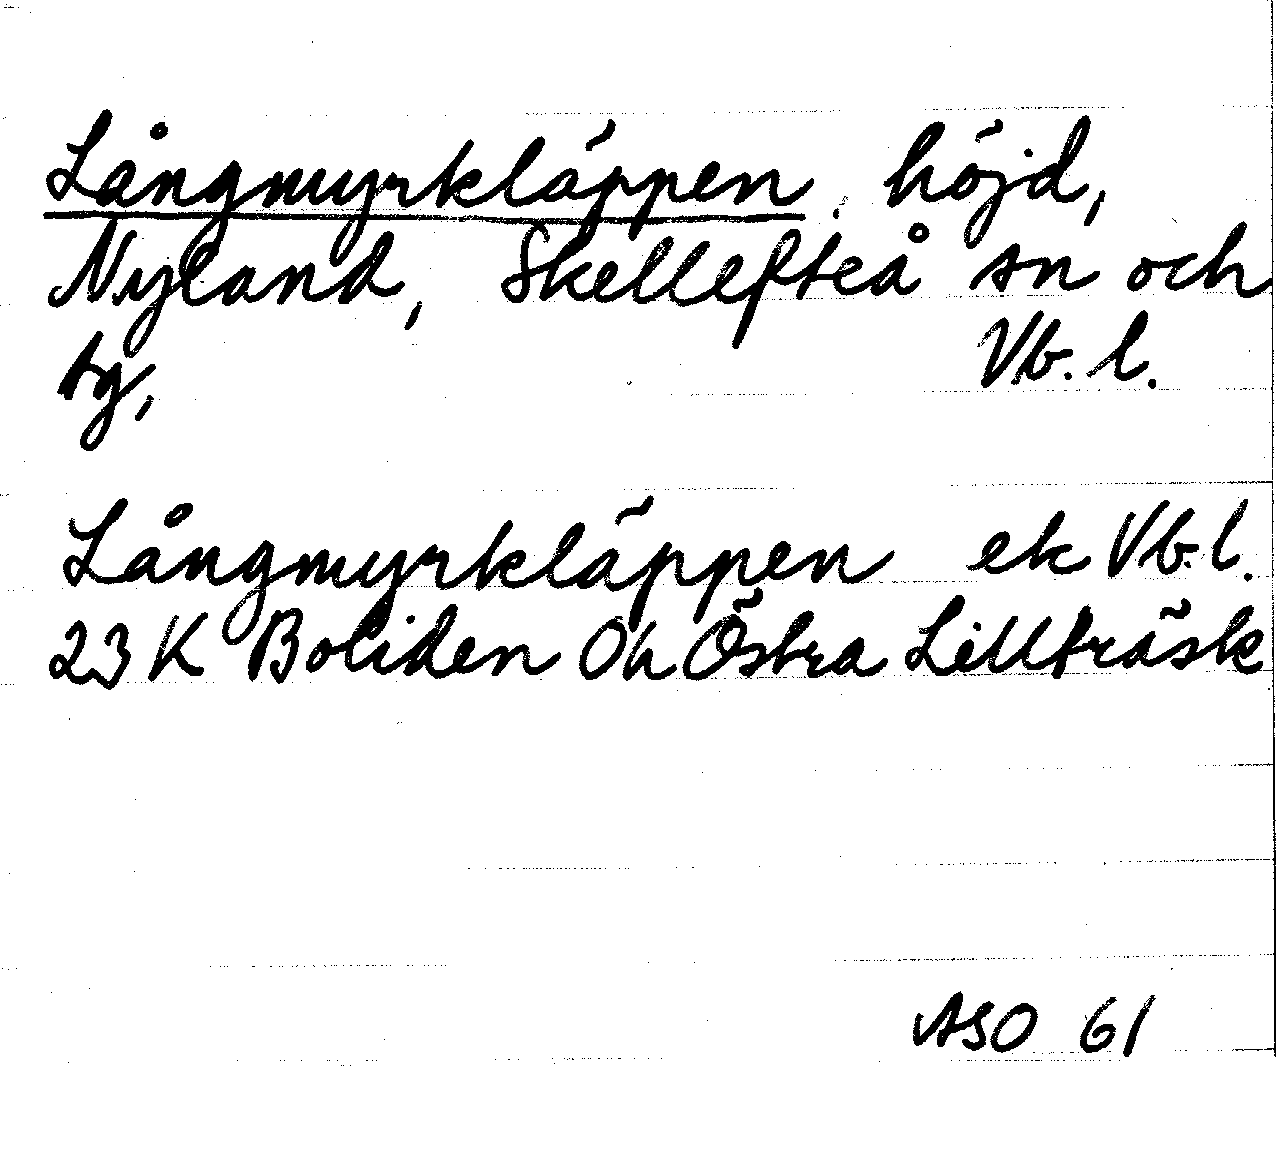 Långmyrkläppen, höjd,
Nyland, Skellefteå sn och
tg, Vb. l.
Långmyrkläppen ek Vb. l.
23 K Boliden Oh Östra Lillträsk
ASO 61